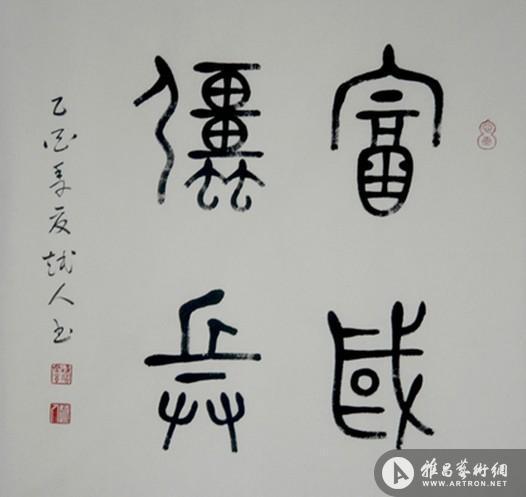 富國
彊兵
乙酉年夏越人书
雅昌藝術網
WWW.ARTRON.NET